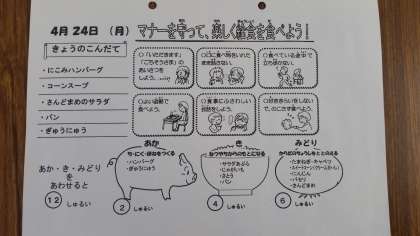 4月24日（月）
マナーを守って、楽しく給食を食べよう！
きょうのこんだて
・にこみハンバーグ
・コーンスープ
・さんどまめのサラダ
・パン
・ぎゅうにゅう
○「いただきます」
「ごちそうさま」の
あいさつを
しよう。
○口に食べ物をいれた
まま話さない。
○食べている途中で
立ち歩かない。
○よい姿勢で
食べよう。
○食事にふさわしい
会話をしよう。
○好ききらいをしない
で、のこさず食べよう。
あか・き・みどり
を
あわせると
12 しゅるい
あか
ち・にく・ほねをつくる
・ハンバーグ
・ぎゅうにゅう
2 しゅるい
き
ねつやちからのもとになる
・サラダあぶら
・じゃがいも
・さとう
・パン
4 しゅるい
みどり
からだのちょうしをととのえる
・たまねぎ・キャベツ
・にんじん
・パセリ
・さんどまめ
6 しゅるい